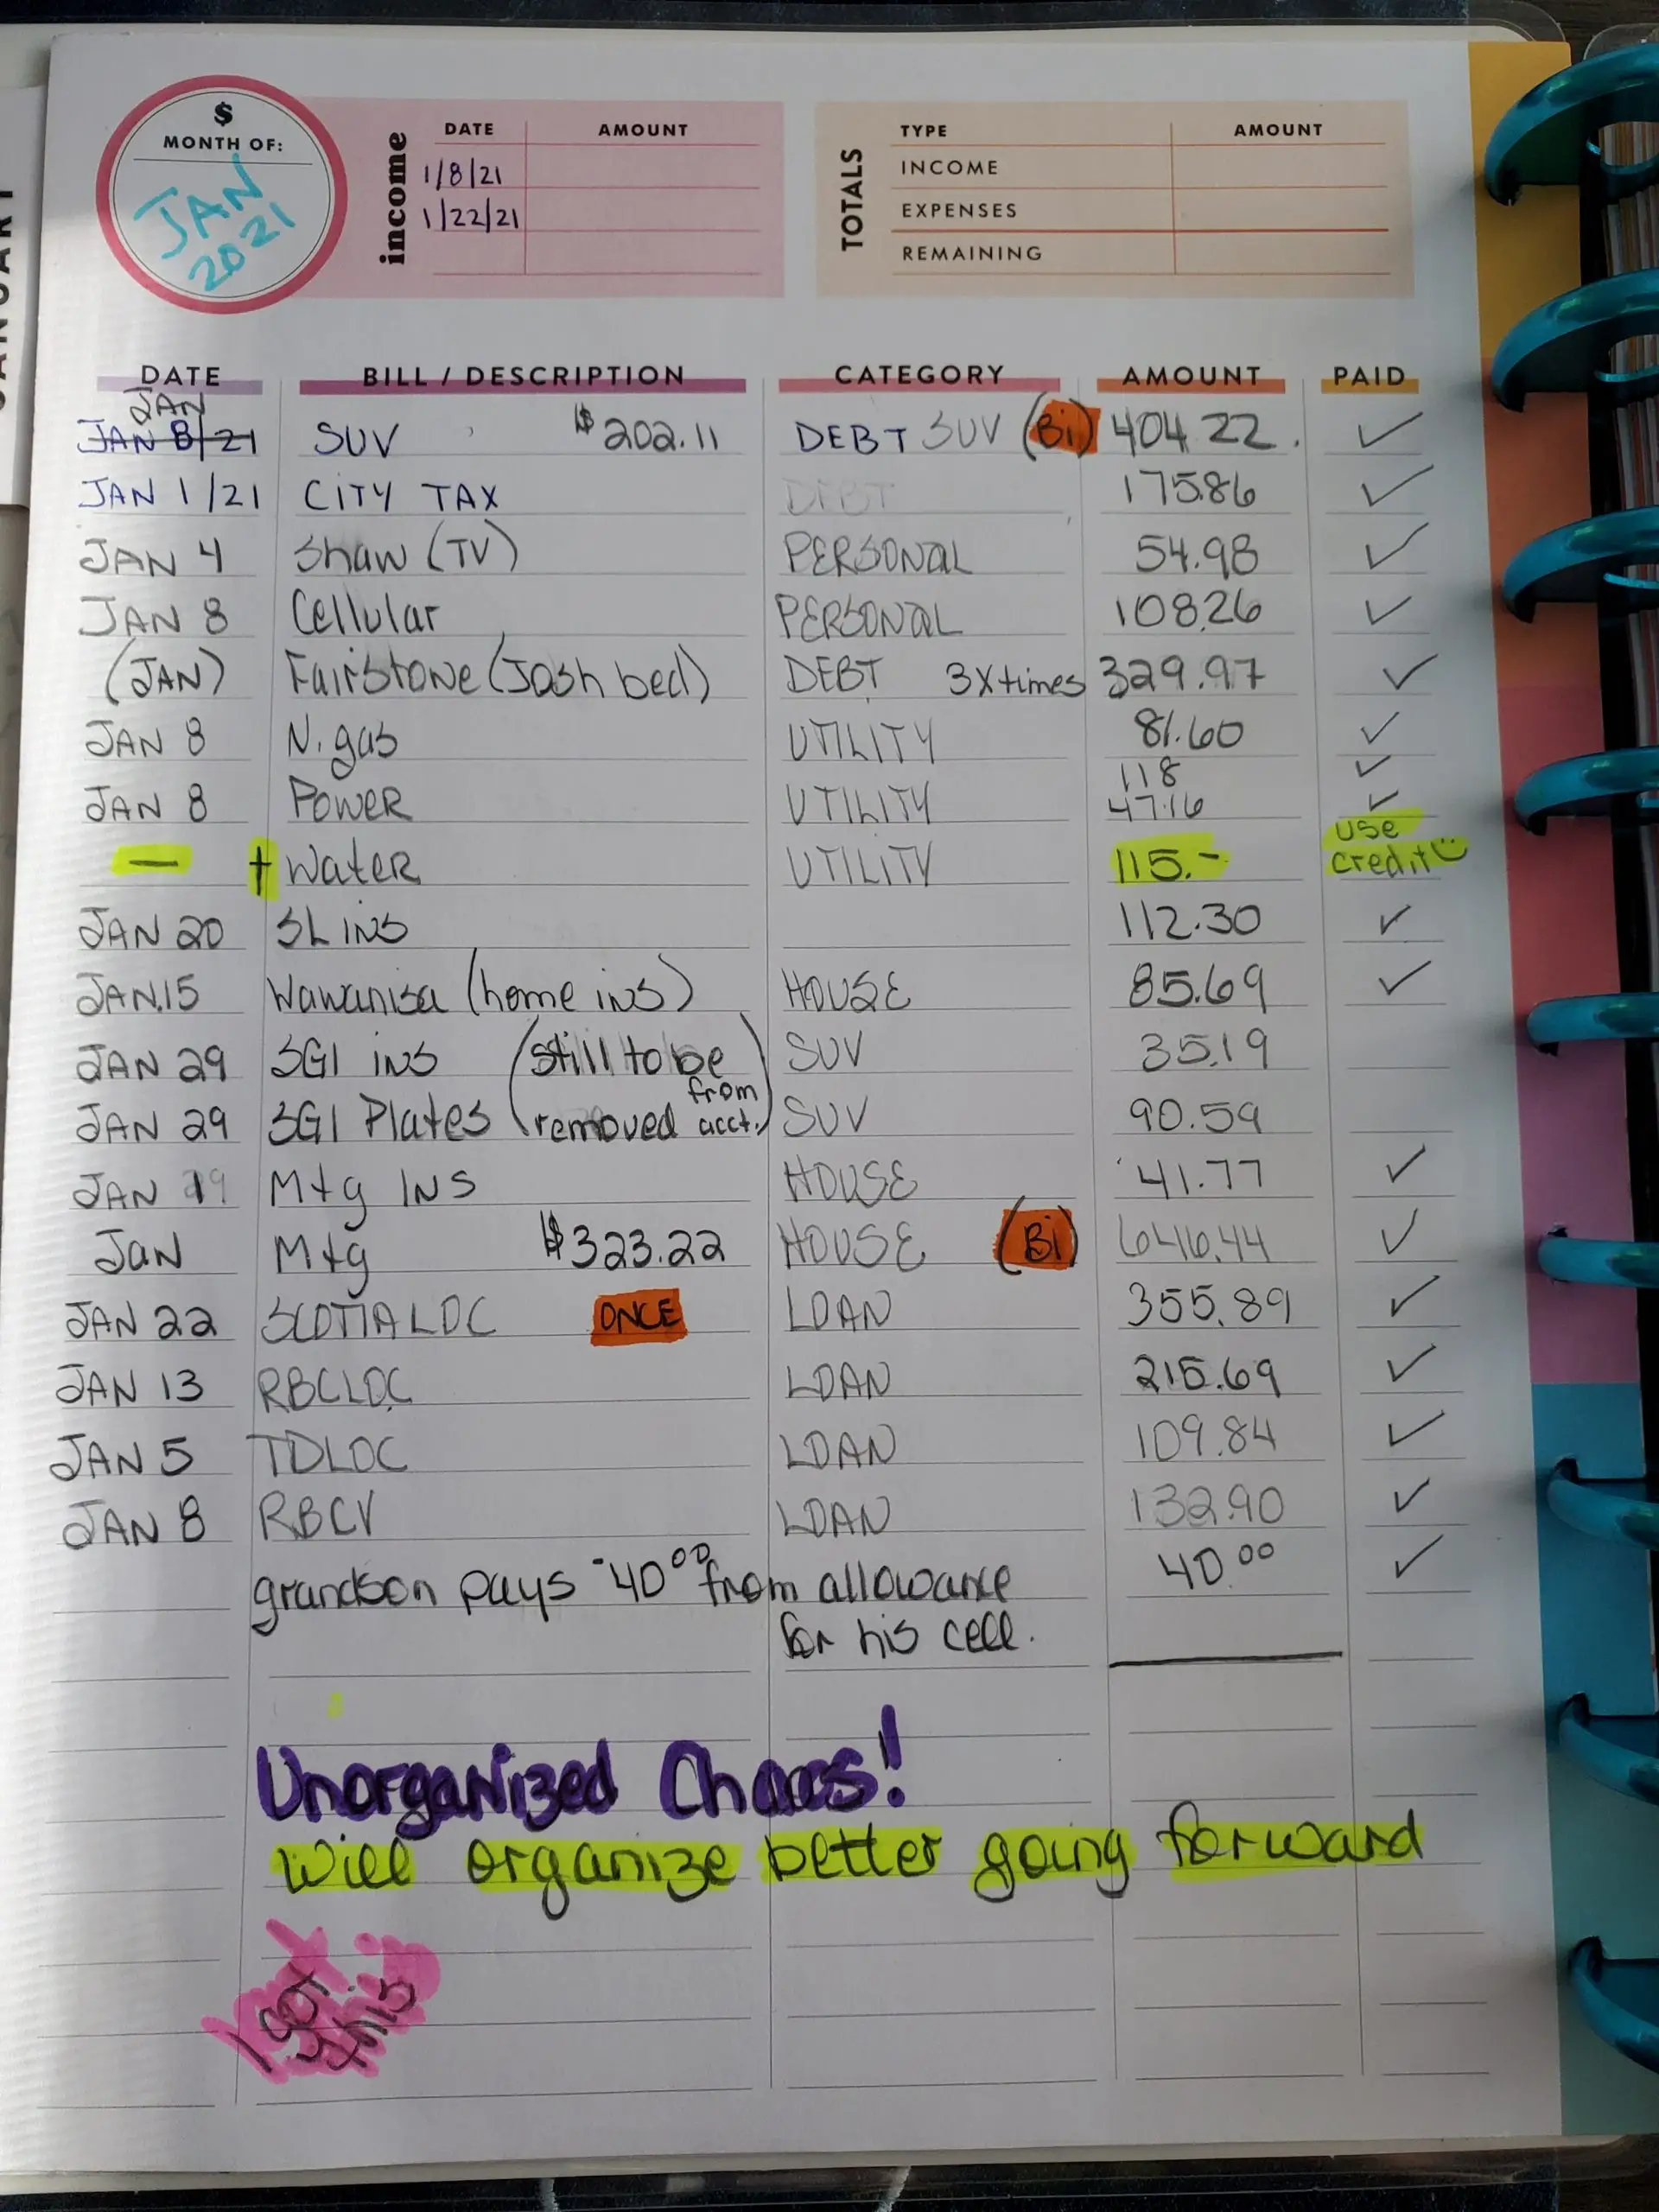 $
MONTH OF:
JAN
2021
income
DATE AMOUNT
1/8/21
1/22/21
TOTALS
TYPE AMOUNT
INCOME
EXPENSES
REMAINING
DATE BILL / DESCRIPTION CATEGORY AMOUNT PAID
JAN
JAN 8/21 SUV $202.11 DEBT SUV (Bi) 404.22. ✓
JAN 1/21 CITY TAX DEBT 175.86 ✓
JAN 4 Shaw (TV) PERSONAL 54.98 ✓
JAN 8 Cellular PERSONAL 108.26 ✓
(JAN) Fairstone (Josh bed) DEBT 3Xtimes 329.97 ✓
JAN 8 N. gas UTILITY 81.60 ✓
118 ✓
JAN 8 POWER UTILITY 47.16 ✓
— + Water UTILITY 115.- use credit
JAN 20 SL INS 112.30 ✓
JAN.15 Wawanisa (home ins) HOUSE 85.69 ✓
JAN 29 SGI INS (still to be SUV 35.19
from
JAN 29 SGI Plates removed acct.) SUV 90.59
JAN 19 Mtg INS HOUSE 41.77 ✓
JAN Mtg $323.22 HOUSE (Bi) 646.44 ✓
JAN 22 SCOTIA LOC ONCE LOAN 355.89 ✓
JAN 13 RBCLOC LOAN 215.69 ✓
JAN 5 TDLOC LOAN 109.84 ✓
JAN 8 RBCV LOAN 132.90 ✓
grandson pays -40⁰⁰ from allowance 40.⁰⁰ ✓
for his cell.
Unorganized Chaos!
will organize better going forward
I got
this